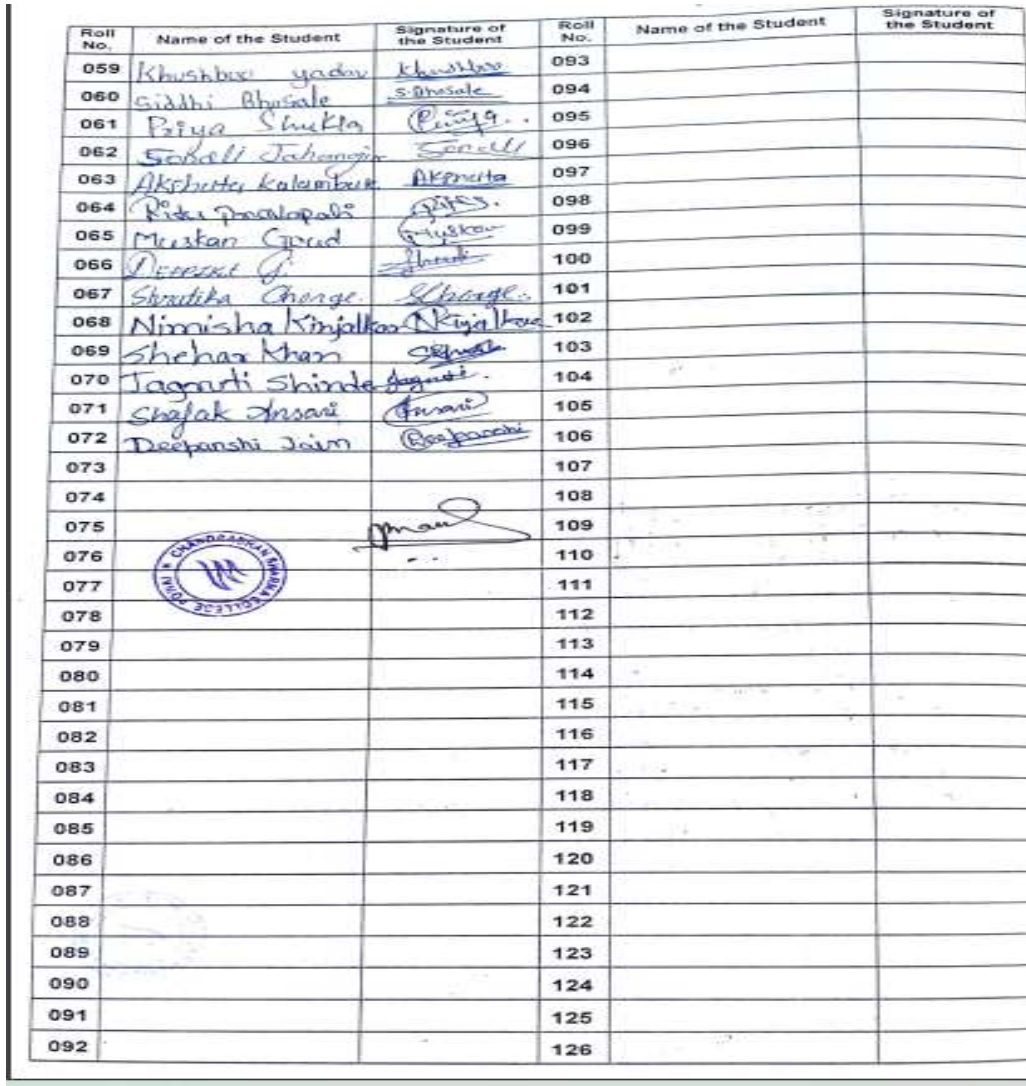 Roll No. Name of the Student Signature of the Student Roll No. Name of the Student Signature of the Student
059 Khushboo yadav Khushboo 093
060 Siddhi Bhosale S.Bhosale 094
061 Priya Shukla Priya 095
062 Sonali Jahangir Sonali 096
063 Akshata Kalambe Akshata 097
064 Ritu 098
065 Muskan Goud Muskan 099
066 G. 100
067 Shrutika Ghorge. 101
068 Nimisha Kinjalkar NKinjalkar 102
069 Shehar Khan 103
070 Jagruti Shinde Jagruti. 104
071 Shafak Ansari Ansari 105
072 Deepanshi Jain Deepanshi 106
073 107
074 108
075 109
076 110
077 111
078 112
079 113
080 114
081 115
082 116
083 117
084 118
085 119
086 120
087 121
088 122
089 123
090 124
091 125
092 126
CHANDRABHAN SHARMA COLLEGE POWAI